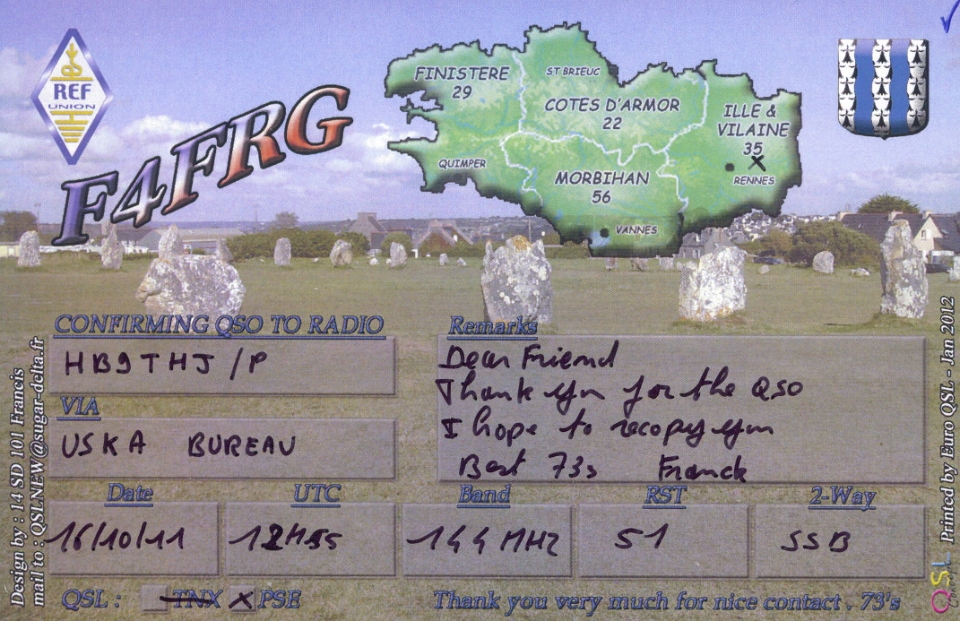 REF
UNION
F4FRG
FINISTERE
29
ST BRIEUC
COTES D'ARMOR
22
ILLE &
VILAINE
35
RENNES
QUIMPER
MORBIHAN
56
VANNES
CONFIRMING QSO TO RADIO
HB9THJ/P
VIA
USKA BUREAU
Remarks
Dear Friend
Thank you for the QSO
I hope to recopy you
Best 73s Franck
Date UTC Band RST 2-Way
16/10/11 144 MHz 51 SSB
QSL : TNX X PSE
Thank you very much for nice contact . 73's
Design by : 14 SD 101 Francis
mail to : QSLNEW@sugar-delta.fr
Printed by Euro QSL - Jan 2012
QSL